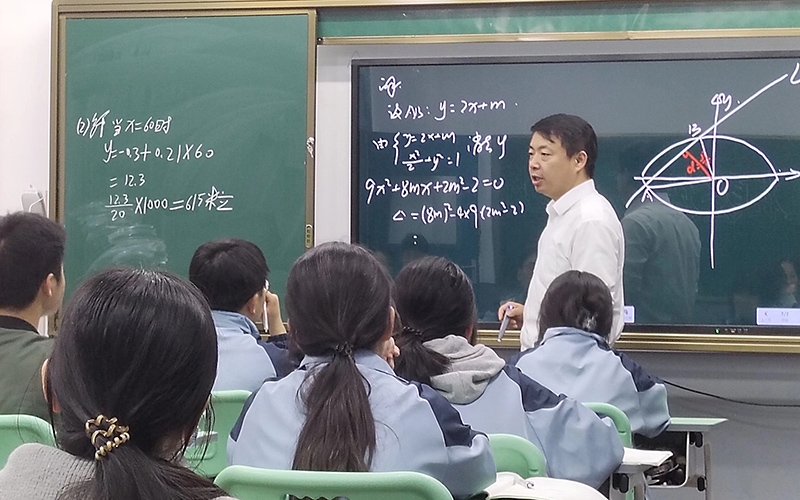 (2) 解 当 x=60时
y=-0.3+0.21×60
=12.3
12.3/20 ×1000=615
设AB: y=2x+m.
由{y=2x+m, x²/2+y²=1 消去y
9x²+8mx+2m²-2=0
Δ=(8m)²-4×9×(2m²-2)
:
y
B
A
O